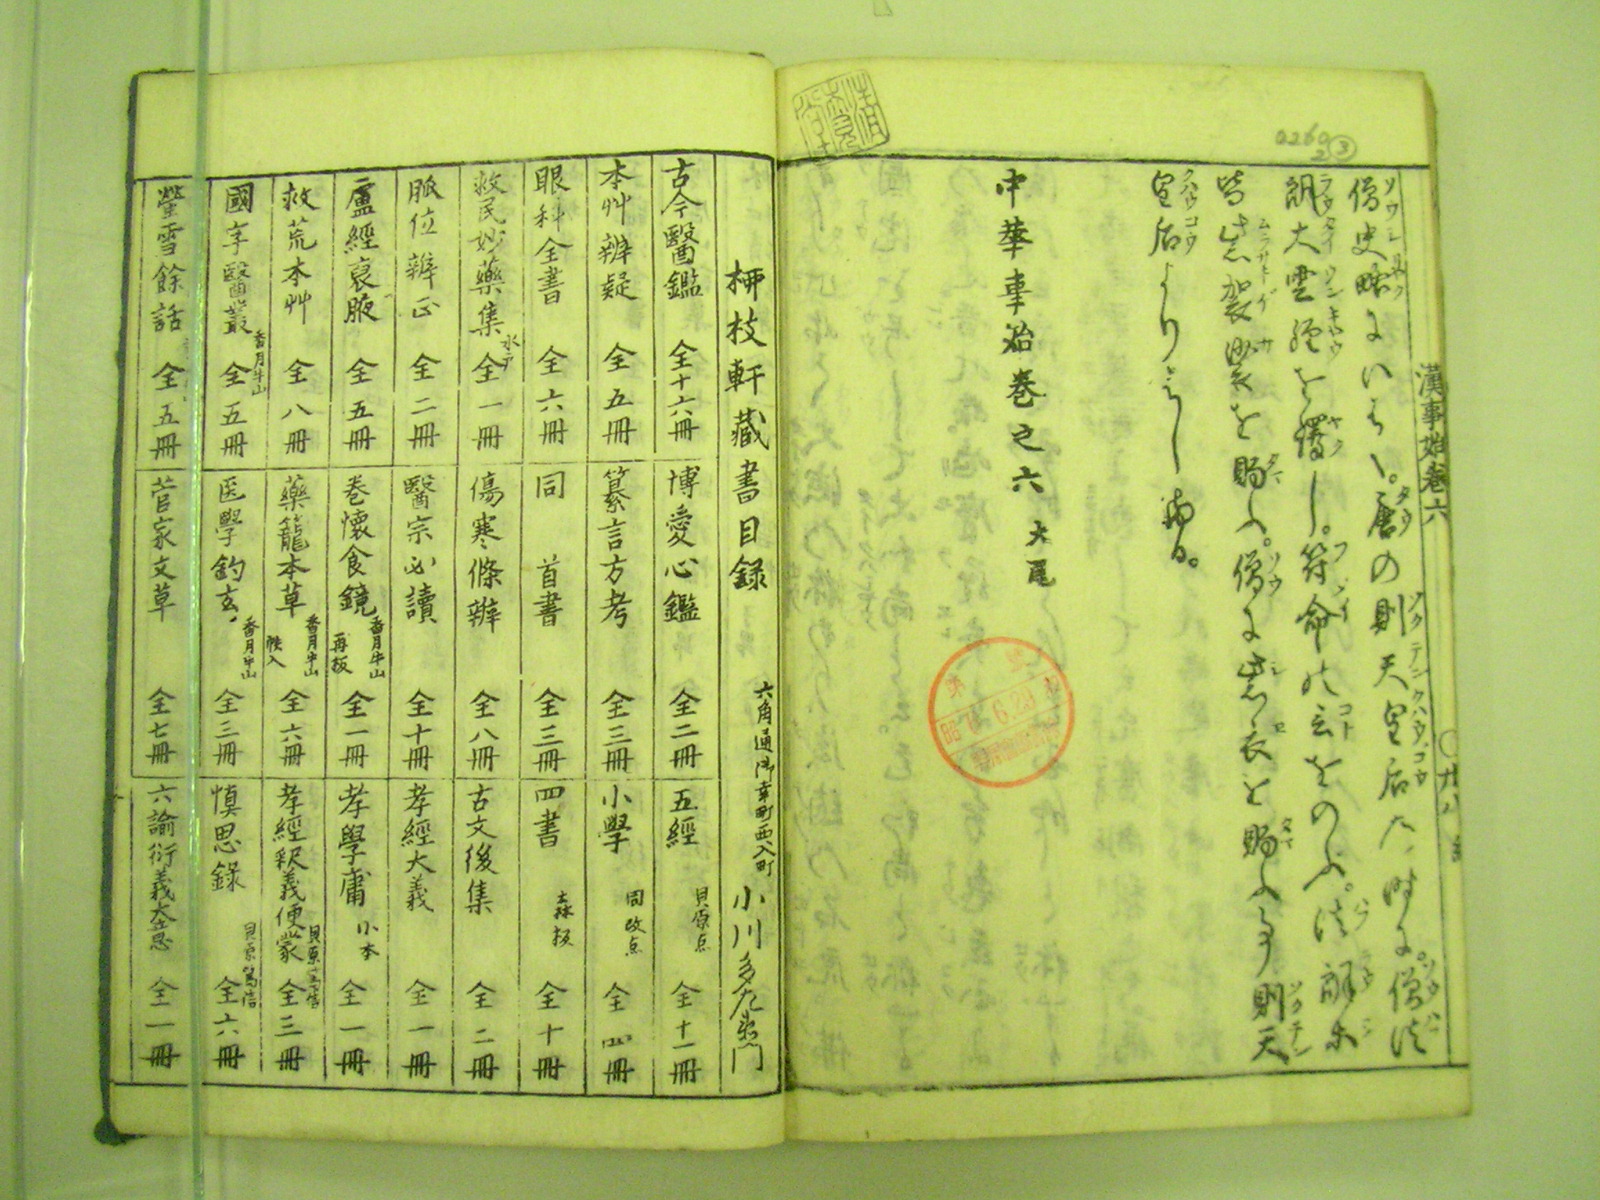 漢事始巻六
僧史略にいはく。唐の則天皇后の時に。僧法
朗大雲経を譯し。符命の言をのぶ。法朗等
皆紫袈裟を賜ふ。僧に紫衣を賜ふ事則天
皇后より
中華事始巻之六 大尾
柳枝軒藏書目録 六角通御幸町西入町 小川多左衛門
古今醫鑑 全十六冊
博愛心鑑 全二冊
五經 貝原点 全十一冊
本艸辨疑 全五冊
纂言方考 全三冊
小學 同改点 全四冊
眼科全書 全六冊
同 首書 全三冊
四書 森板 全十冊
救民妙藥集 水戸 全一冊
傷寒條辨 全八冊
古文後集 全二冊
脈位辨正 全二冊
醫宗必讀 全十冊
孝經大義 全一冊
盧經裒腋 全五冊
巻懷食鏡 香月牛山 再板 全一冊
孝學庸 小本 全一冊
救荒本艸 全八冊
藥籠本草 香月牛山 帙入 全六冊
孝經釈義便蒙 貝原篤信 全三冊
國字醫叢 香月牛山 全五冊
医學鈞玄 香月牛山 全三冊
慎思錄 貝原篤信 全六冊
螢雪餘話 全五冊
菅家文草 全七冊
六諭衍義大意 全一冊